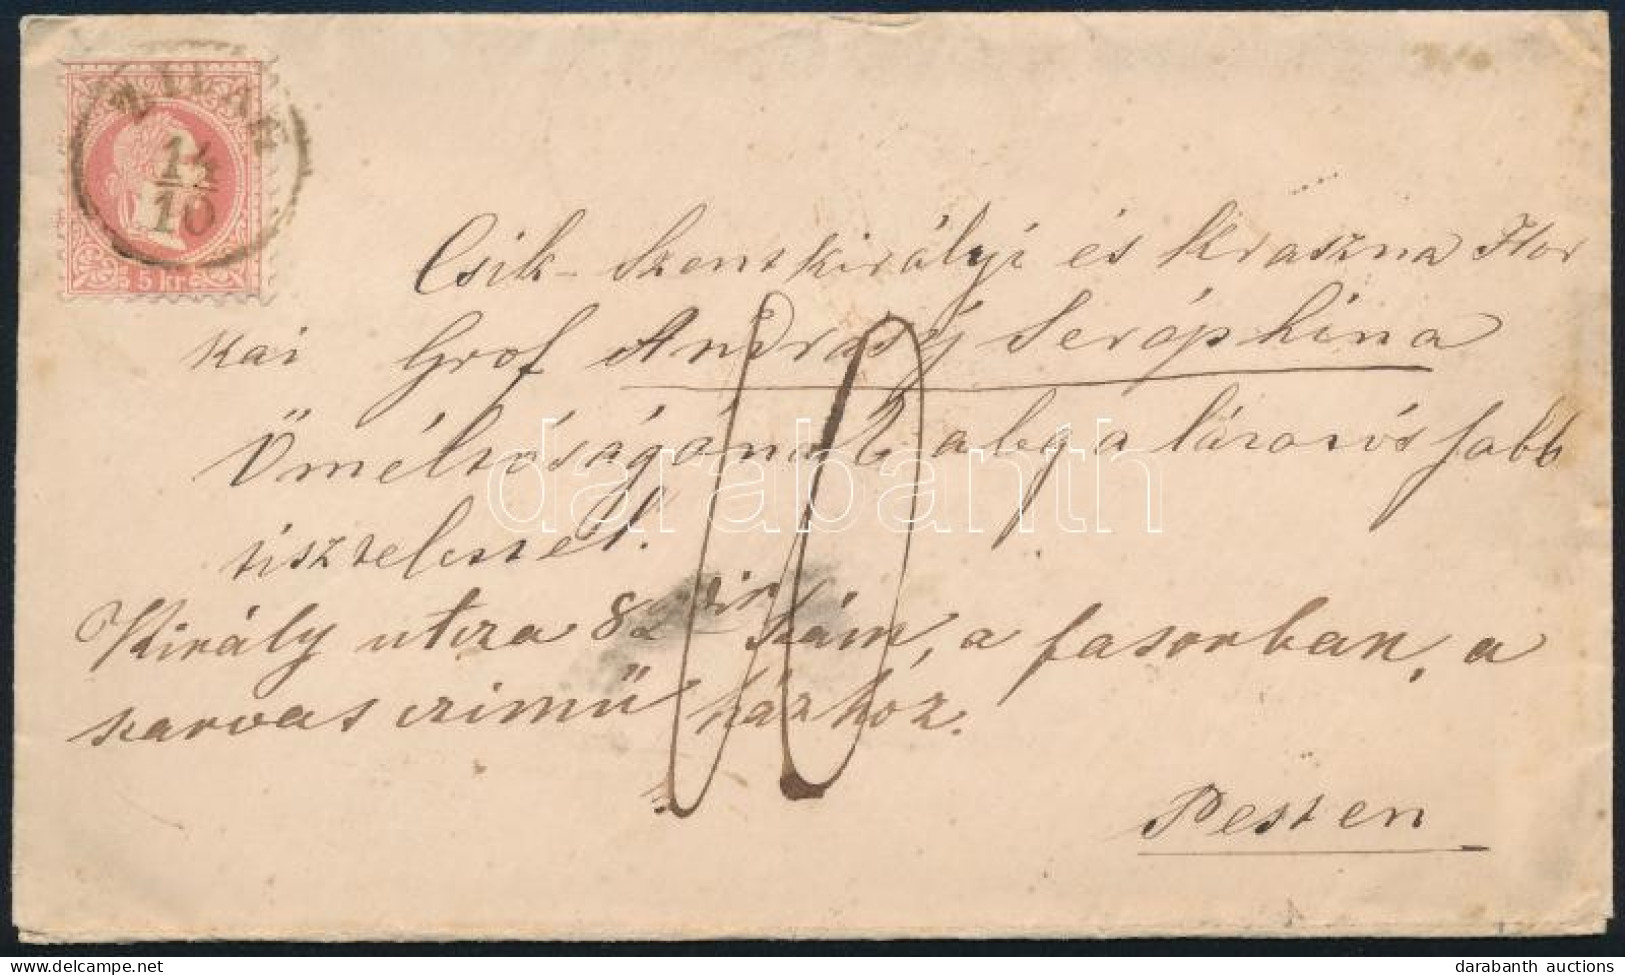 ZILAH
14
10
5 kr
Csik-Szentkirályi és Kraszna Hor
kai Grof Andrásy Seráphina
Őméltóságának a legalázatosabb
tisztelettel.
10
Király utcza 82dik szám, a fasorban, a
szarvas czimű házhoz.
Pesten
darabanth
darabanth auctions